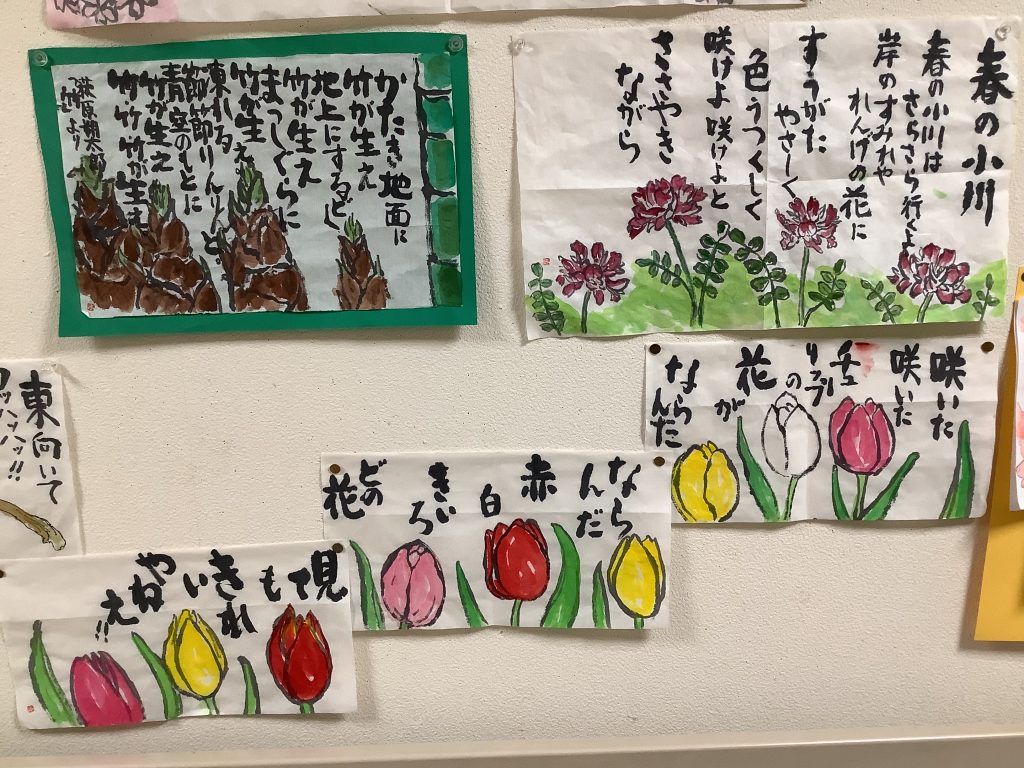 かたき地面に
竹が生え
地上にするどく
竹が生え
まっしぐらに
竹が生え
凍れる
節節りんりんと
青空のもとに
竹が生え
竹竹竹が生え
萩原朔太郎
竹より
春の小川
春の小川は
さらさら行くよ
岸のすみれや
れんげの花に
すうがた
やさしく
色うつくしく
咲けよ咲けよと
ささやき
ながら
咲いた
咲いた
チュー
リップの
花が
ならんだ
なら
んだ
赤
白
きい
ろ
どの
花
見ても
きれ
い
やねえ!!
東向いて